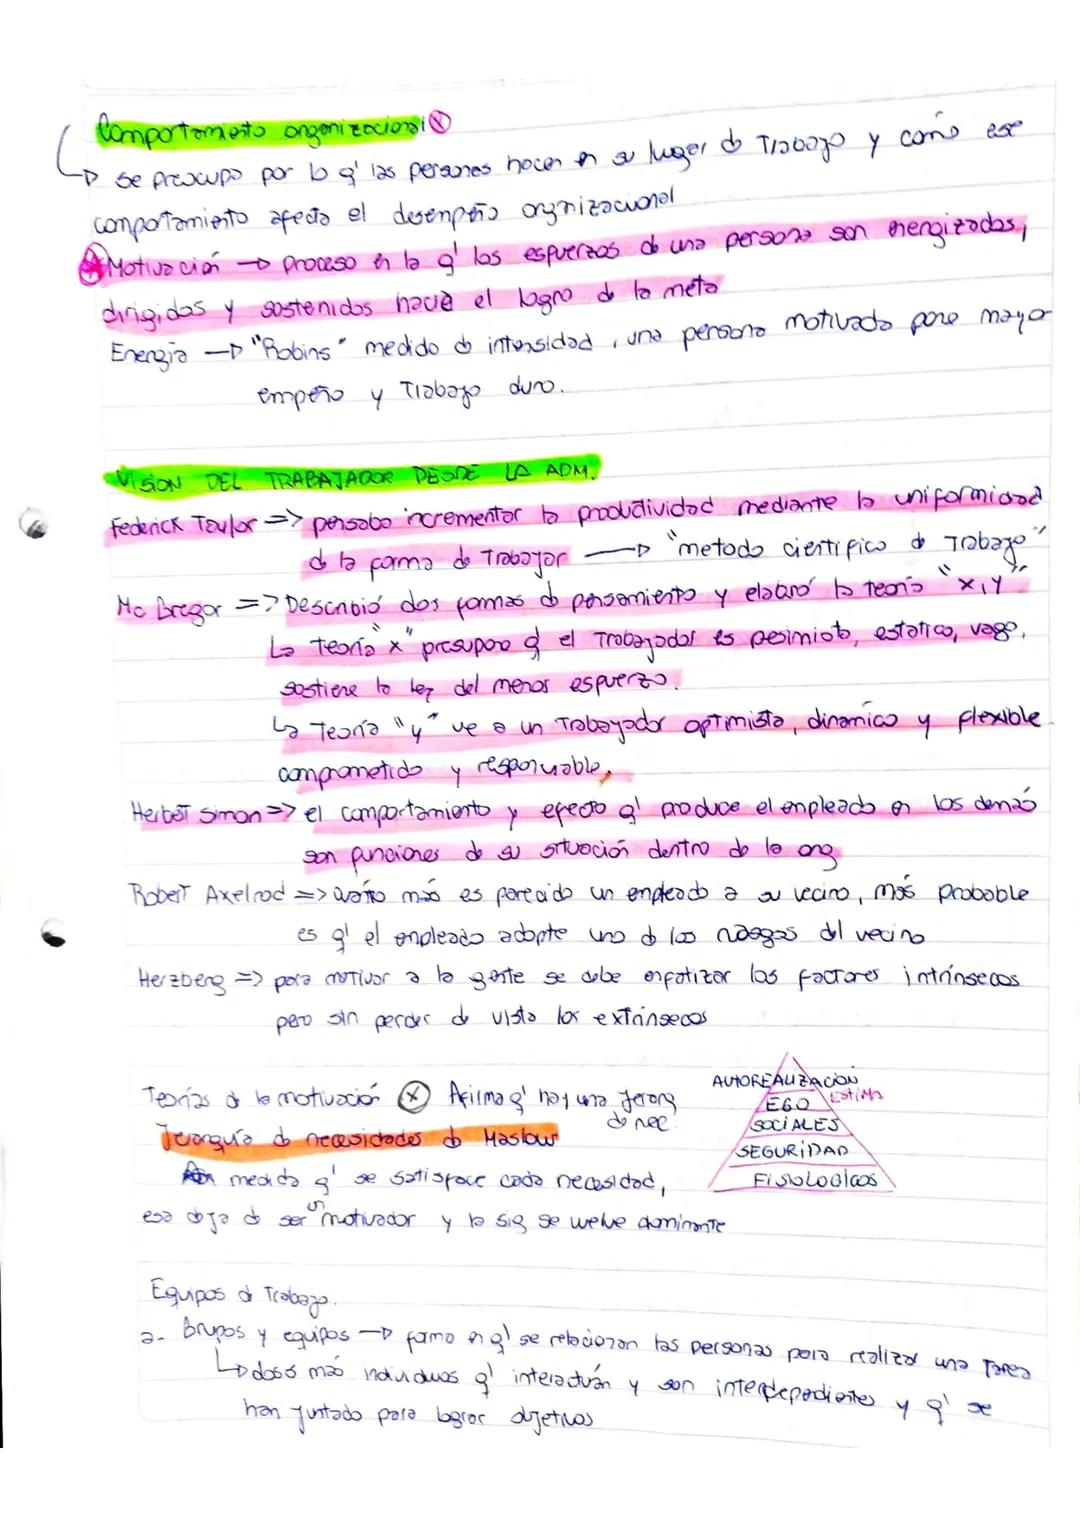 Comportamiento organizacional
se preocupa por lo q' las personas hacen en su lugar de Trabajo y como ese
comportamiento afecta el desempeño organizacional
Motivación → proceso en la q' los esfuerzos de una persona son energizados,
dirigidos y sostenidos hacia el logro de la meta
Energia → "Robins" medida de intensidad, una persona motivada pone mayor
empeño y Trabajo duro.
VISION DEL TRABAJADOR DESDE LA ADM.
Federick Taylor => pensaba incrementar la productividad mediante la uniformidad
de la forma de Trabajar → "metodo cientifico de Trabajo"
Mc Gregor => Describió dos formas de pensamiento y elaboró la teoría "x,y"
La teoría "x" presupone q' el Trabajador es pesimista, estatico, vago,
sostiene la ley del menor esfuerzo.
La Teoría "y" ve a un Trabajador optimista, dinamico y flexible
comprometido y responsable.
Herbet Simon => el comportamiento y efecto q' produce el empleado en los demás
son funciones de su situación dentro de la org
Robert Axelrod => cuanto más es parecido un empleado a su vecino, más probable
es q' el empleado adopte uno de los rasgos del vecino
Herzberg => para motivar a la gente se debe enfatizar los factores intrínsecos
pero sin perder de vista los extrínsecos
Teorías de la motivación Afirma q' hay una Jerarq
de nec.
Jerarquía de necesidades de Maslow
medida q' se satisface cada necesidad,
esa deja de ser un motivador y la sig se vuelve dominante
AUTOREALIZACION
EGO Estima
SOCIALES
SEGURIDAD
Fisiologicas
Equipos de Trabajo.
a- Grupos y equipos → forma en q' se relacionan las personas para realizar una Tarea
dos o más individuos q' interactúan y son interdependientes y q' se
han juntado para lograr objetivos